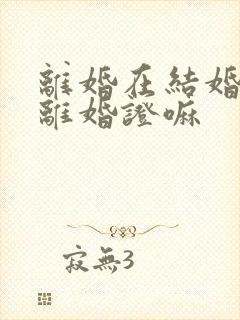 離婚在結婚
離婚證嘛
寂無3